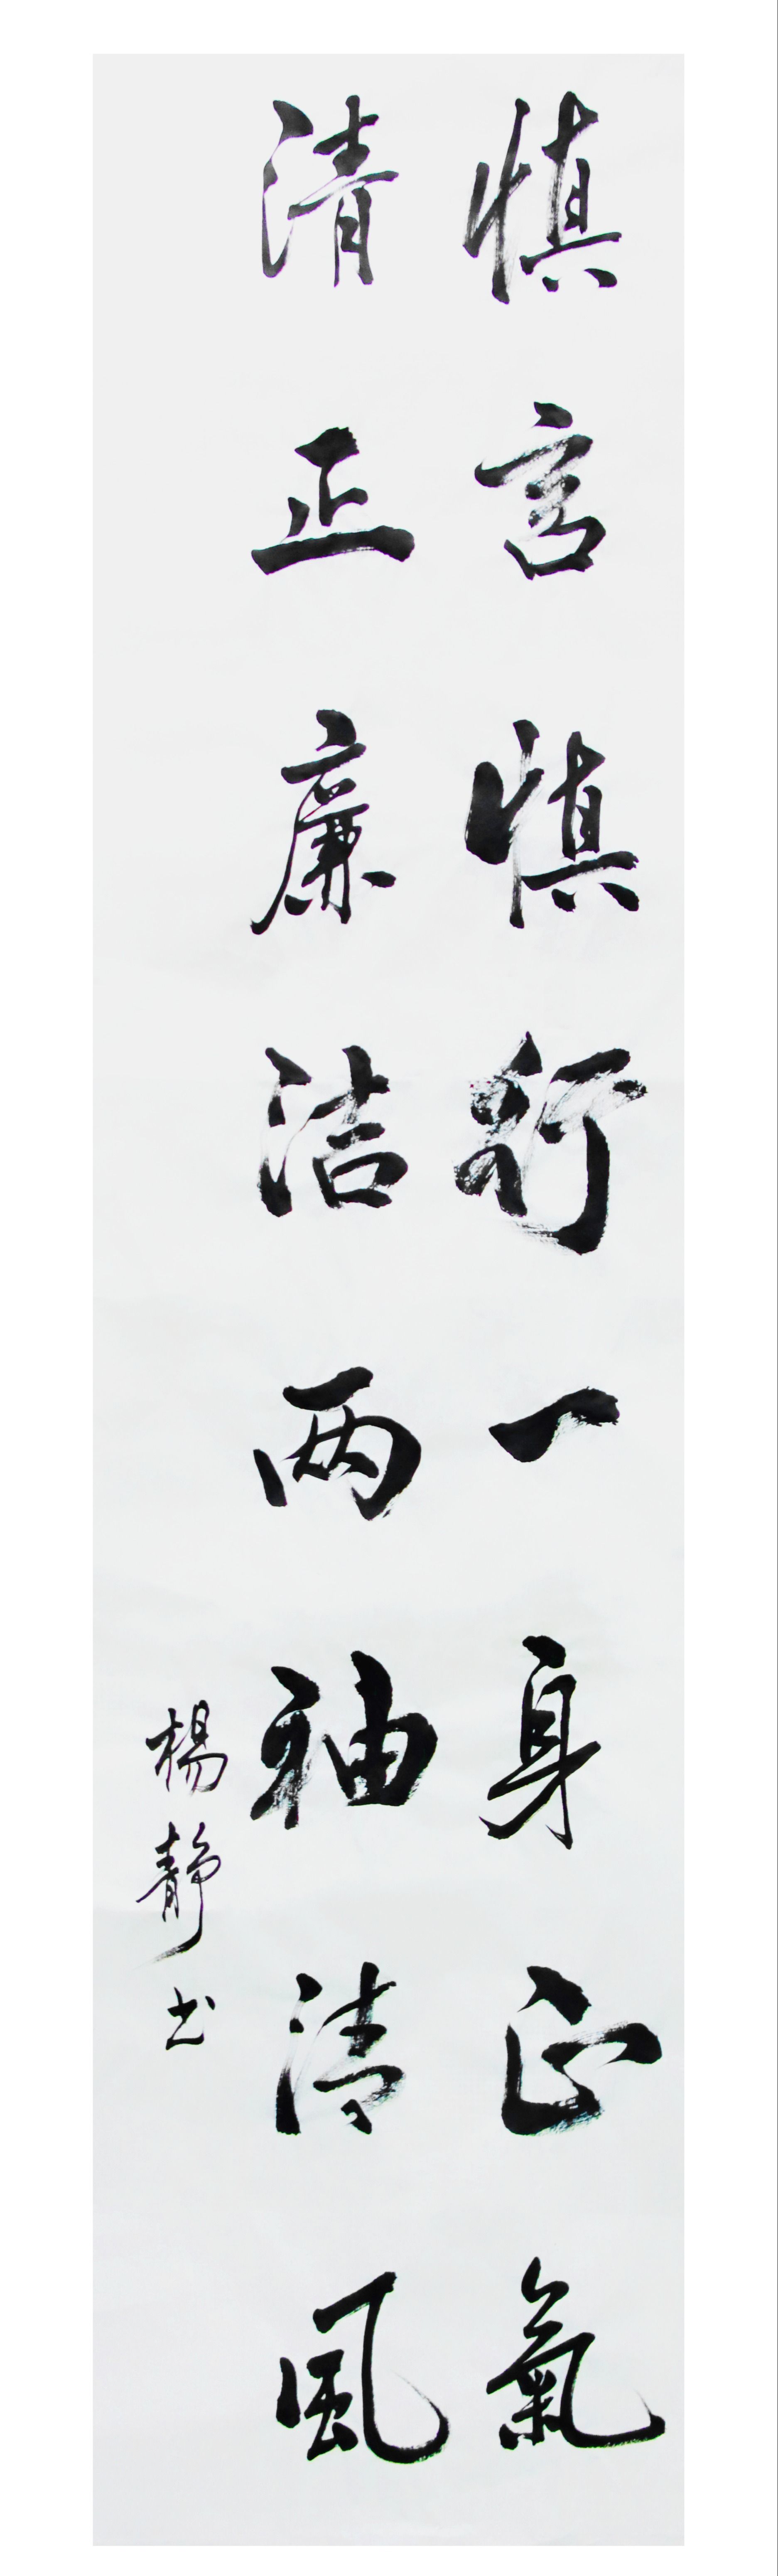 慎言慎行一身正氣
清正廉洁两袖清風
楊靜书